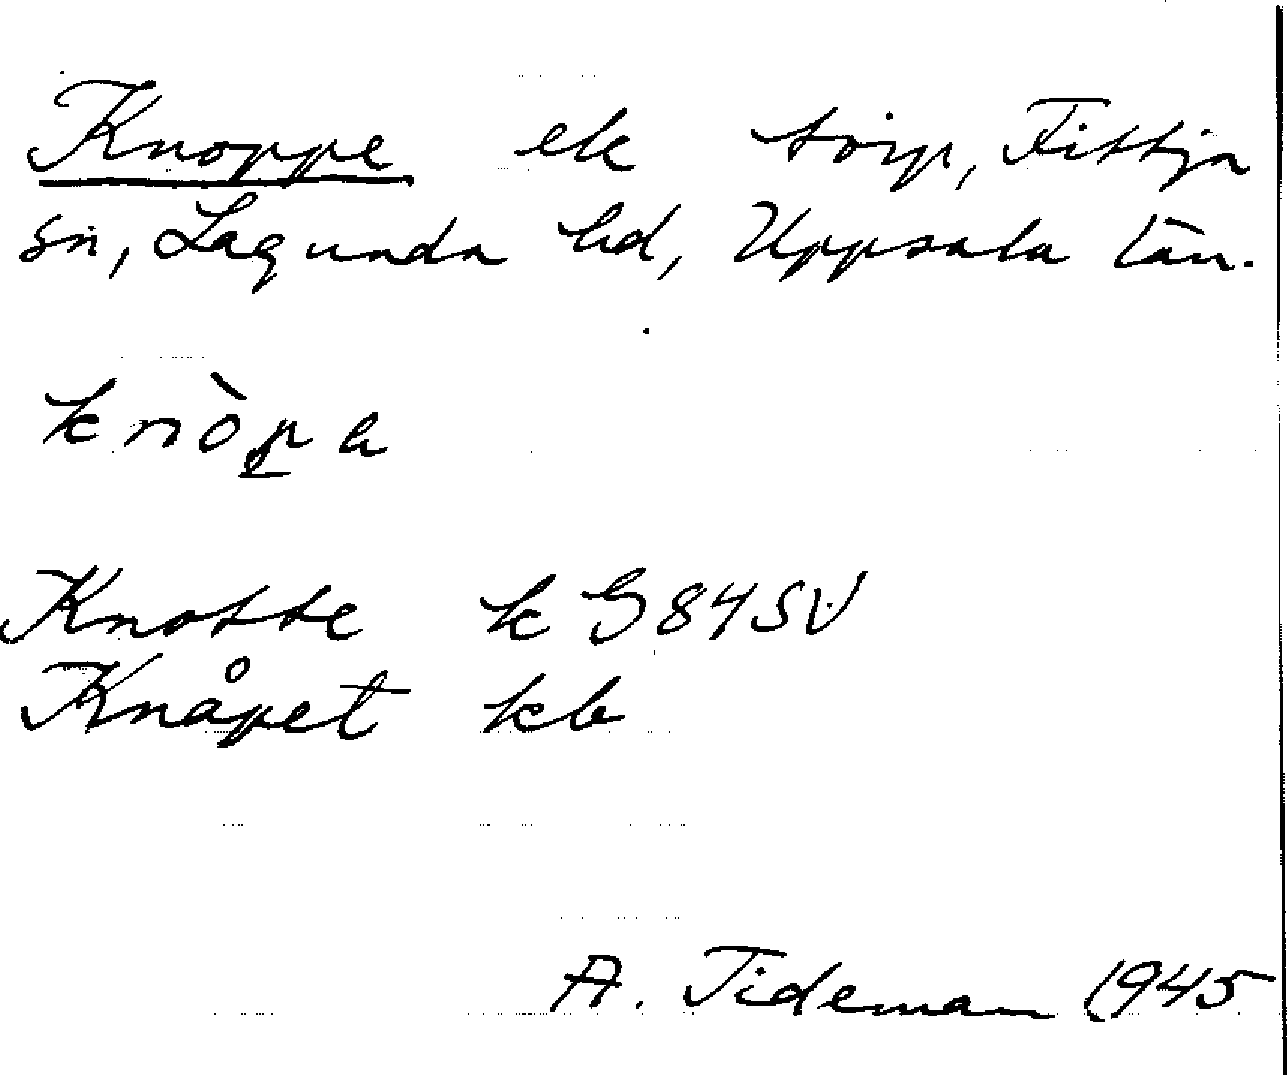 Knoppe ek torp, Fittja
sn, Lagunda hd, Uppsala län.
knòpa
Knotte k G 84 SV
Knåpet kb
A. Tideman 1945